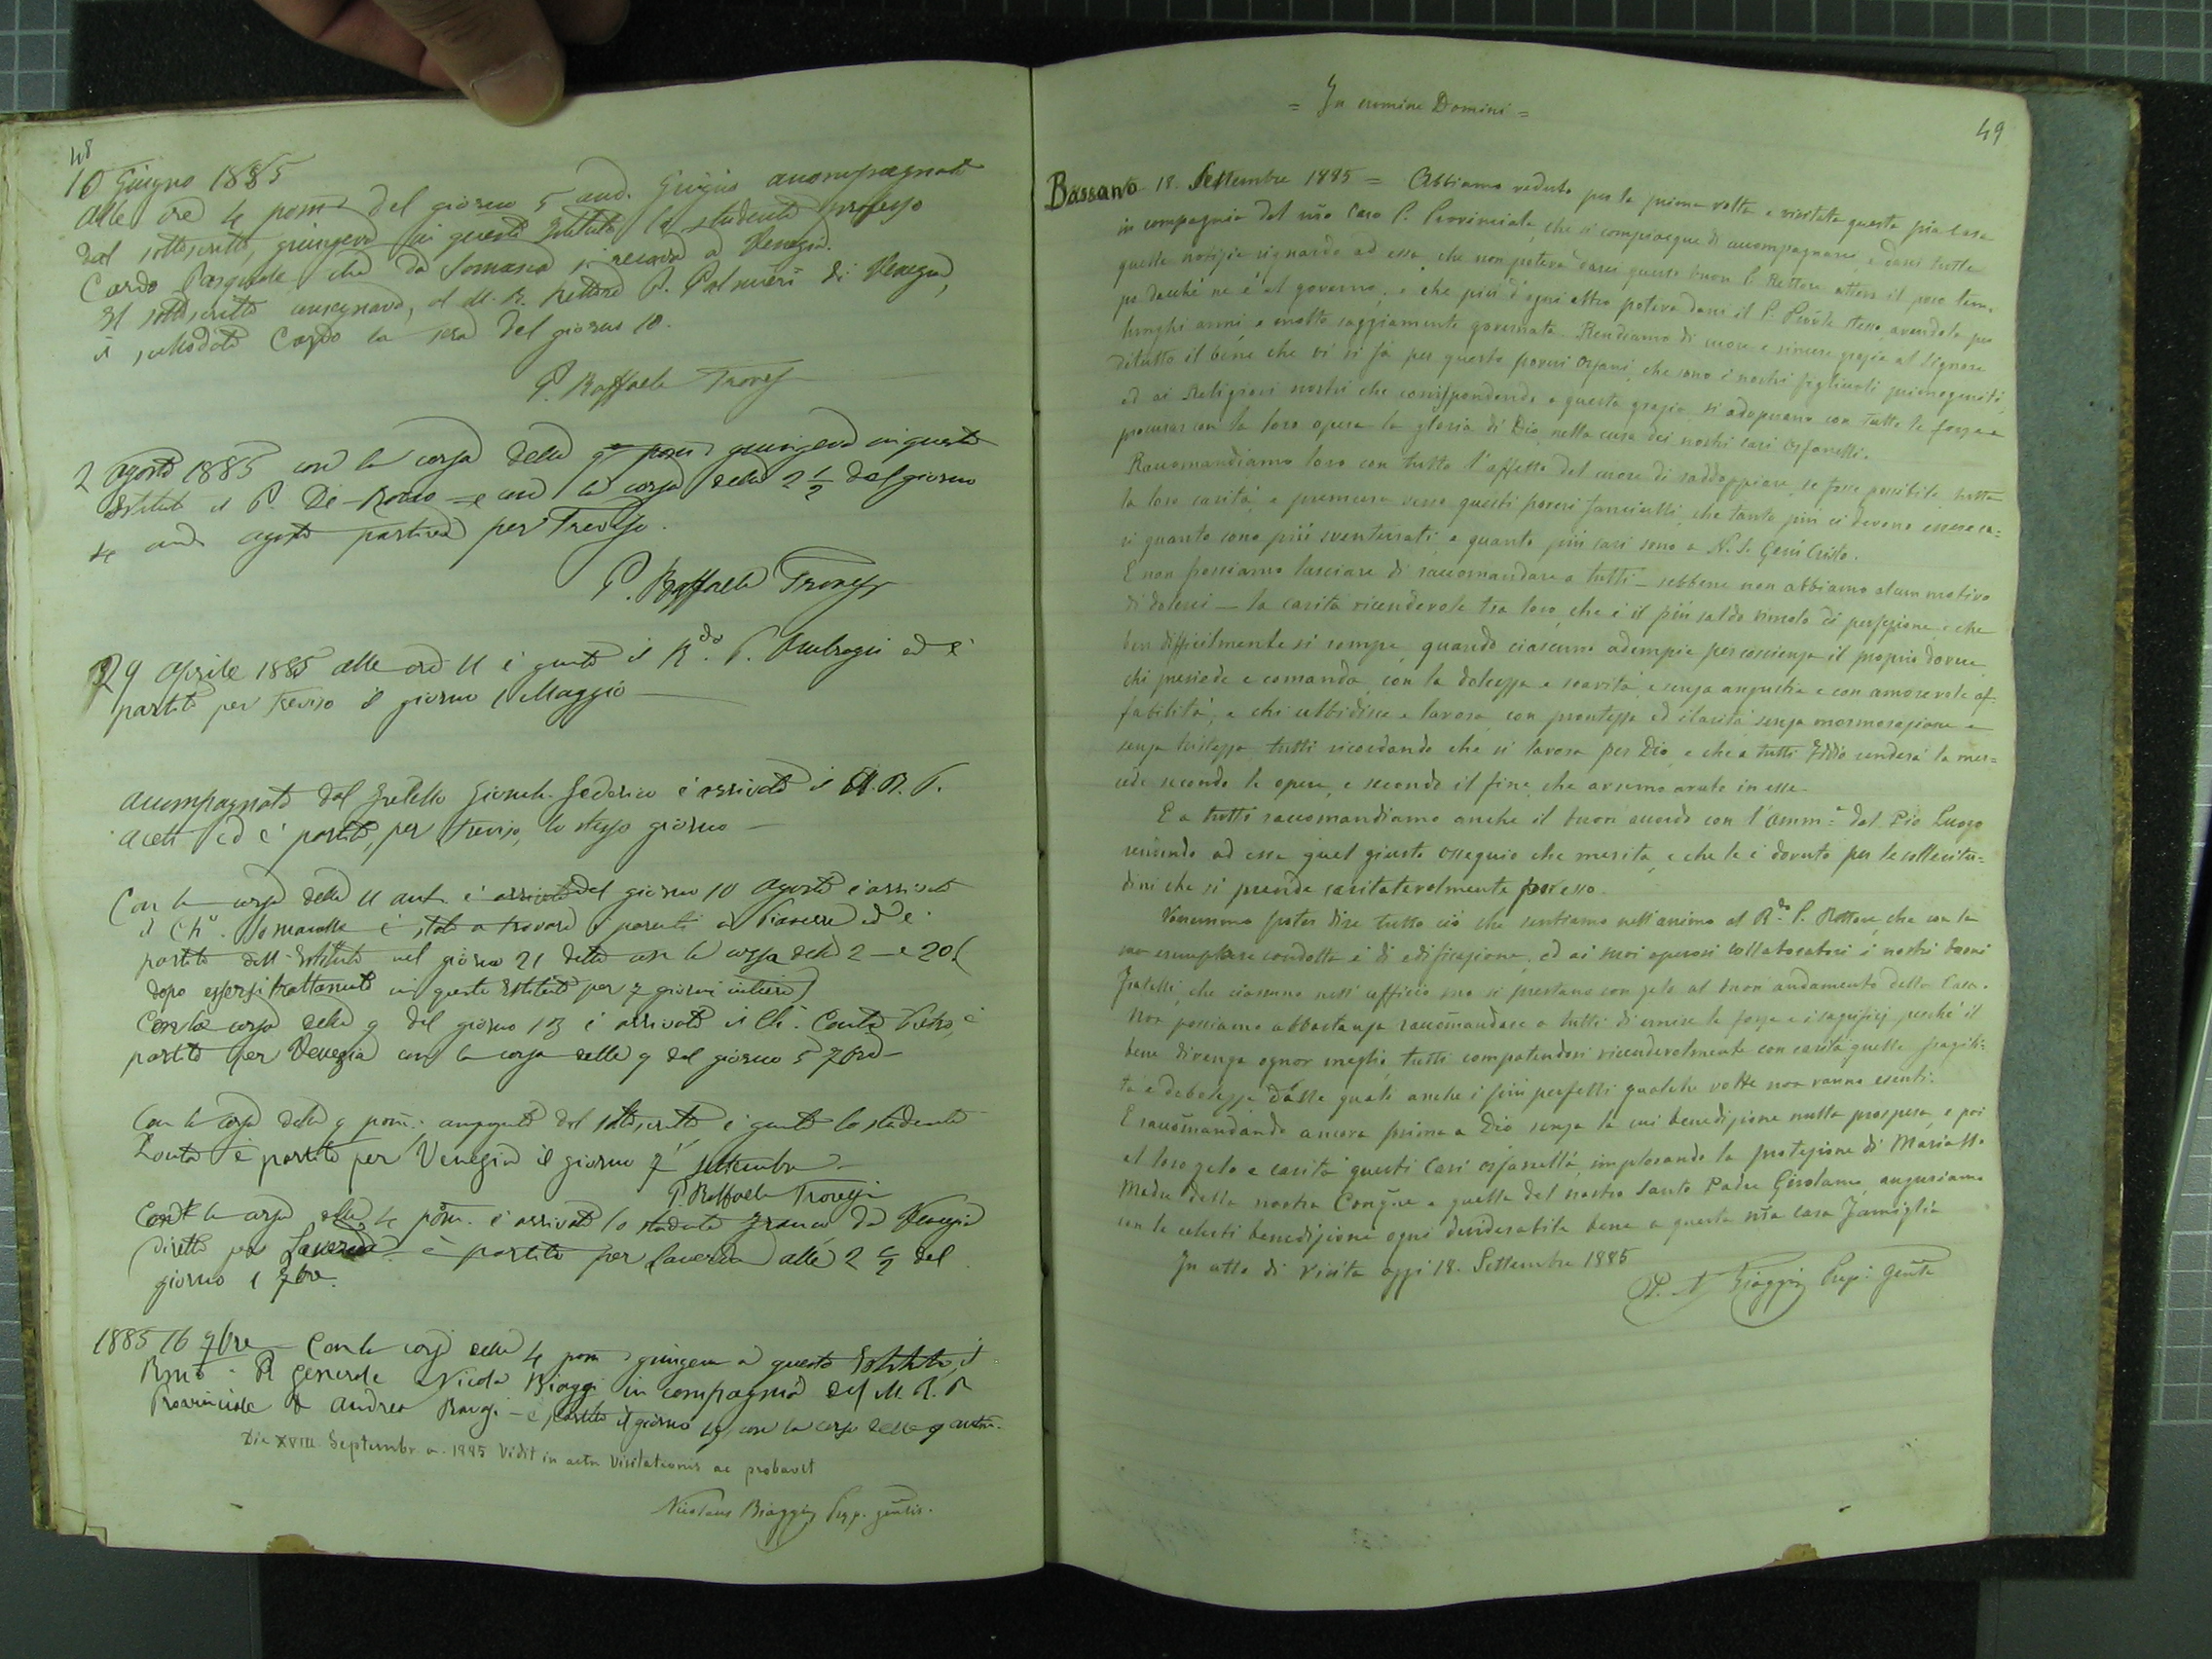 48
10 Giugno 1885
Alle ore 4 pom. del giorno 5 and. Giugno accompagnato
dal sottoscritto, giungeva in questo Istituto lo studente professo
Cardo Pasquale che da Somasca si recava a Venezia.
Il sottoscritto consegnava, al M. R. Rettore P. Palmieri di Venezia,
il sullodato Cardo la sera del giorno 10.
P. Raffaele
2 Agosto 1885 con la corsa delle giungeva in questo
Istituto il P. De-Rocco e con la corsa delle 2 1/2 del giorno
4 and. agosto partiva per Treviso.
P. Raffaele
29 Aprile 1885 alle ore 11 è giunto il R.do P. Ambrogio ed è
partito per Treviso il giorno 1 Maggio
Accompagnato dal fratello Federico è arrivato il M. R. P.
ed è partito, per Treviso, lo stesso giorno
Con la corsa delle 11 ant. è arrivato del giorno 10 Agosto è arrivato
il Ch.o è stato a trovare i parenti a ed è
partito dall'Istituto nel giorno 21 detto con la corsa delle 2 e 20 (
dopo essersi trattenuto in questo Istituto per 7 giorni intieri)
Con la corsa delle 9 del giorno 13 è arrivato il Ch. Conte Pietro, è
partito per Venezia con la corsa delle 9 del giorno 5 7bre
Con la corsa delle 9 pom. dal sottoscritto è giunto lo studente
è partito per Venezia il giorno 7 settembre
P. Raffaele
la corsa delle 4 pom. è arrivato lo studente Franco da Venezia
diretto per è partito per alle 2 1/2 del
giorno 1 7bre.
1885 16 7bre Con la corsa delle 4 pom giungeva a questo Istituto, il
Rmo P. Generale Nicola Biaggi in compagnia del M. R. P.
Provinciale D. Andrea - è partito il giorno 19 con la corsa delle 9 antm.
Die XVIII Septembr. a. 1885 Vidit in actu Visitationis ac probavit
Nicolaus Biaggi Prep. gñlis.
49
= In nomine Domini =
Bassano 18. Settembre 1885 = Abbiamo veduto per la prima volta e visitata questa pia Casa
in compagnia del nr̃o Caro P. Provinciale, che si compiacque di accompagnarci, e darci tutte
quelle notizie riguardo ad essa, che non poteva darci questo buon P. Rettore atteso il poco tem.
po dacché ne è al governo, e che più d'ogni altro poteva darci il P. Prov̄le stesso, avendola per
lunghi anni e molto saggiamente governata. Rendiamo di cuore e sincere grazie al Signore
di tutto il bene che vi si fa per questi poveri Orfani, che sono i nostri figliuoli primogeniti,
ed ai Religiosi nostri che corrispondendo a questa grazia si adoprano con tutte le forze a
procurar con la loro opera la gloria di Dio, nella cura dei nostri cari Orfanelli.
Raccomandiamo loro con tutto l'affetto del cuore di raddoppiare, se fosse possibile, tutta
la loro carità, e premura verso questi poveri fanciulli, che tanto più ci devono essere ca=
ri quanto sono più sventurati, e quanto più cari sono a N. S. Gesù Cristo.
E non possiamo lasciare di raccomandare a tutti - sebbene non abbiamo alcun motivo
di dolerci - la carità vicendevole tra loro, che è il più saldo vincolo di perfezione, e che
ben difficilmente si rompe, quando ciascuno adempie per coscienza il proprio dovere
chi presiede e comanda, con la dolcezza e soavità, e senza angustia e con amorevole af=
fabilità, e chi ubbidisce e lavora, con prontezza ed ilarità senza mormorazione e
senza tristezza, tutti ricordando che si lavora per Dio, e che a tutti Iddio renderà la mer=
cede secondo le opere, e secondo il fine, che avremo avuto in esse.
E a tutti raccomandiamo anche il buon accordo con l'Amm.e del Pio Luogo
ad essa quel giusto ossequio che merita, e che le è dovuto per le sollecitu=
dini che si prende caritatevolmente per esso.
Vorremmo poter dire tutto ciò che sentiamo nell'animo al R.do P. Rettore, che con la
sua esemplare condotta è di edificazione, ed ai suoi operosi collaboratori i nostri buoni
Fratelli, che ciascuno nell'ufficio suo si prestano con zelo al buon andamento della Casa.
Non possiamo abbastanza raccomandare a tutti di unire le forze e i sagrifizj perché il
bene divenga ognor meglio, tutti compatendosi vicendevolmente con carità quelle fragili=
tà e debolezze dalle quali anche i più perfetti qualche volta non vanno esenti.
E raccomandando ancora prima a Dio senza la cui benedizione nulla prospera, e poi
al loro zelo e carità questi Cari orfanelli, implorando la protezione di Maria SS.
Madre della nostra Cong̃ne e quella del nostro Santo Padre Girolamo, auguriamo
con le celesti benedizioni ogni desiderabile bene a questa nr̃a cara Famiglia
In atto di Visita oggi 18. Settembre 1885
P. N. Biaggi Prep. Gen̄le